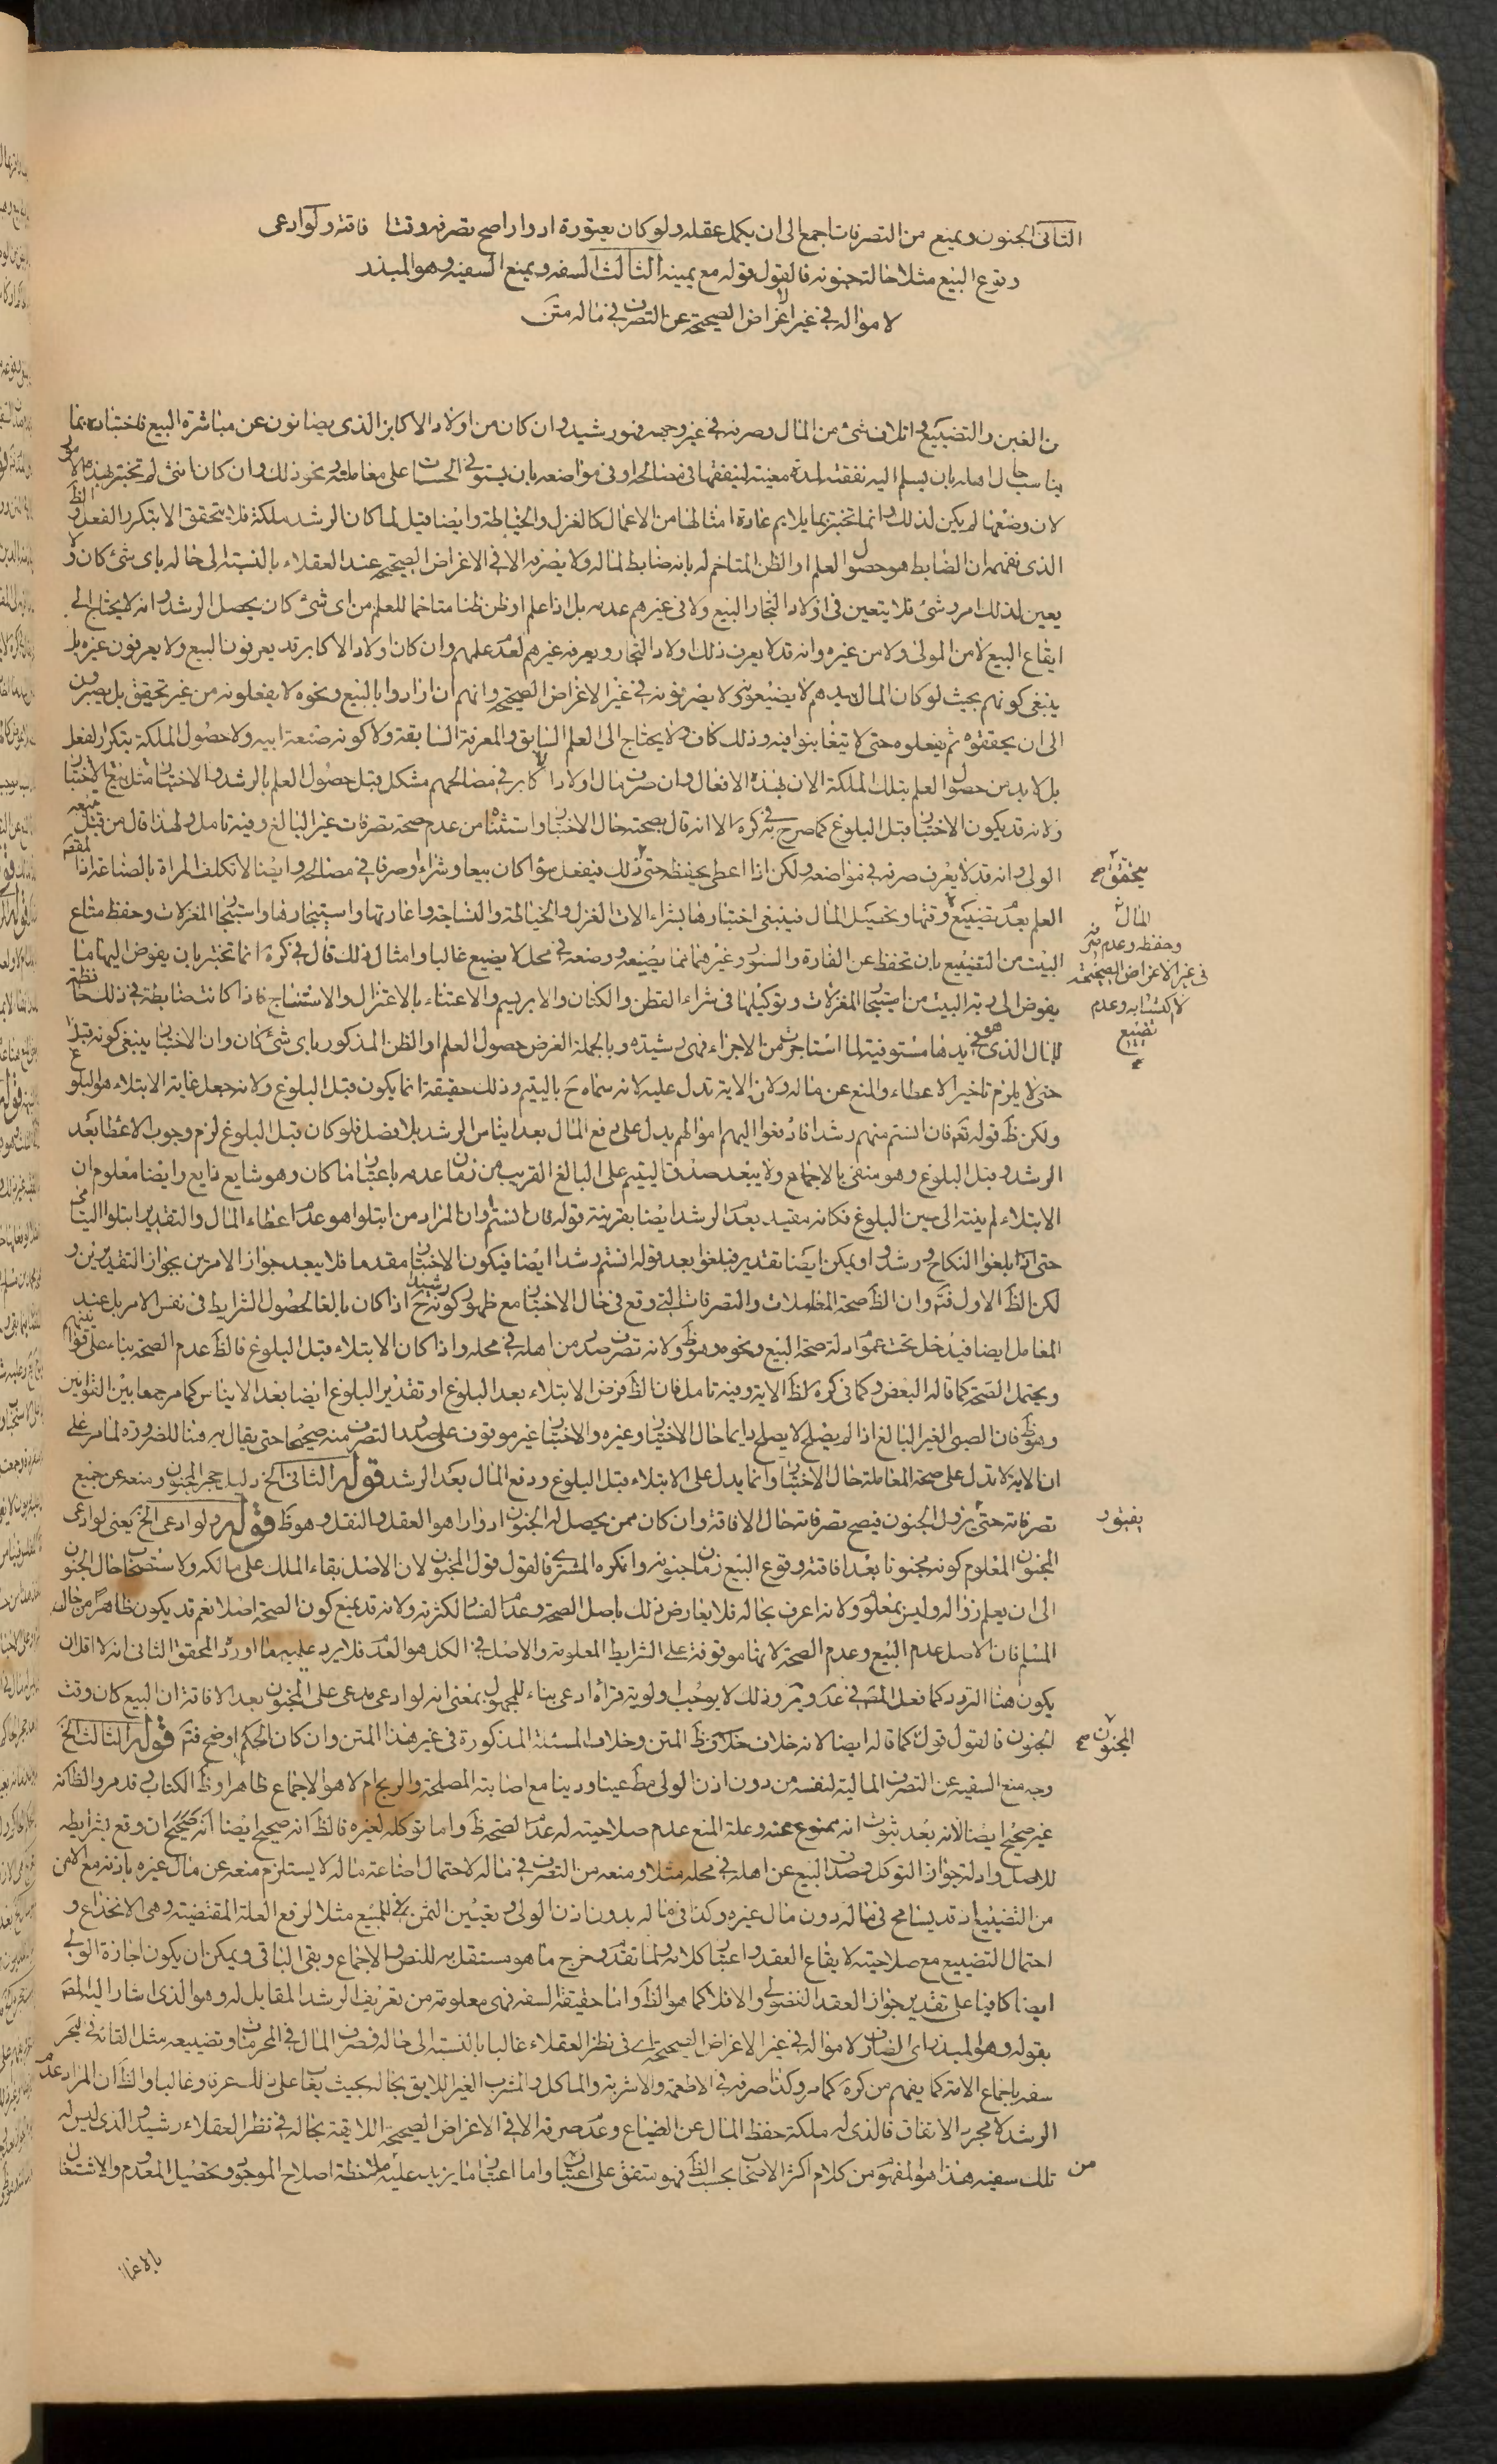 الثانی الجنون ویمنع من التصرفات اجمع الی ان یکمل عقله ولو کان یعتوره ادوارا صح تصرفه وقت افاقته ولو ادعی
وقوع البیع مثلا حالة جنونه فالقول قوله مع یمینه الثالث السفه ویمنع السفیه وهو المبذر
لامواله فی غیر الاغراض الصحیحة عن التصرف فی ماله متن
من الغبن والتضییع واتلاف شئ من المال وصرفه فی غیر وجهه فهو رشید وان کان من اولاد الاکابر الذی یصانون عن مباشرة البیع فاختباره بما
یناسب حال اهله بان یسلم الیه نفقته لمدة معینة لینفقها فی مصالحه او فی مواضعه بان یستوفی الحساب علی معاملیه ونحو ذلک وان کان انثی لم تختبر بهذه الامور
لان وضعها لم یکن لذلک وانما تختبر بما یلایم عادة امثالها من الاعمال کالغزل والخیاطة وایضا قیل لما کان الرشد ملکة فلا یتحقق الا بتکرر الفعل والظ
الذی نفهمه ان الضابط هو حصول العلم او الظن المتاخم له بانه ضابط لماله ولا یصرفه الا فی الاغراض الصحیحة عند العقلاء بالنسبة الی حاله بای شئ کان ولا
یعین لذلک امر وشئ فلا یتعین فی اولاد التجار البیع ولا فی غیرهم عدمه بل اذا علم او ظن ظنا متاخما للعلم من ای شئ کان یحصل الرشد وانه لا یحتاج الی
ایقاع البیع لا من المولی ولا من غیره وانه قد لا یعرف ذلک اولاد التجار ویعرفه غیرهم لعدم علمهم وان کان اولاد الاکابر قد یعرفون البیع ولا یعرفون غیره بل
ینبغی کونهم بحیث لو کان المال بیدهم لا یضیعونه ولا یصرفونه فی غیر الاغراض الصحیحة وانهم ان ارادوا بالبیع ونحوه لا یفعلونه من غیر تحقیق بل یصبرون
الی ان یحققوه ثم یفعلوه حتی لا یتغابنوا فیه وذلک کاف ولا یحتاج الی العلم السابق والمعرفة السابقة ولا کونه صنعة ابیه ولا حصول الملکة بتکرار الفعل
بل لا بد من حصول العلم بتلک الملکة الان بهذه الافعال وان صرف مال اولاد الاکابر فی مصالحهم مشکل قبل حصول العلم بالرشد والاختبار مثل بیع الاختبار
ولانه قد یکون الاختبار قبل البلوغ کما صرح به فی کره الا انه قال بصحته حال الاختبار واستثناه من عدم صحة تصرفات غیر البالغ وفیه تامل ولهذا قال من قبل منعه
الولی وانه قد لا یعرف صرفه فی مواضعه ولکن اذا اعطی یحفظه حتی ذلک فیفعل سواء کان بیعا وشراء او صرفا فی مصالحه وایضا لا نکلف المراة بالصناعة اذا المقصد
العلم بعدم تضییع وقتها وتحصیل المال فینبغی اختبارها بشراء الات الغزل والخیاطة والنساجة واعارتها واستیجارها واستیجار المغزلات وحفظ متاع
البیت من التضییع بان تحفظ عن الفارة والسنور وغیرهما مما یضیعه ووضعه فی محل لا یضیع غالبا وامثال ذلک قال فی کره انما تختبر بان یفوض الیها ما
یفوض الی ربة البیت من استیجار المغزلات وتوکیلها فی شراء القطن والکتان والابریسم والاعتناء بالاغتزال والاستنساج فاذا کانت ضابطة فی ذلک حافظة
للمال الذی هو فی یدها مستوفیة لما استاجرت من الاجراء فهی رشیدة وبالجملة الغرض حصول العلم او الظن المذکور بای شئ کان وان الاختبار ینبغی کونه قبلا
حتی لا یلزم تاخیر الاعطاء والمنع عن ماله ولان الایة تدل علیه لانه سماه ح بالیتیم وذلک حقیقة انما یکون قبل البلوغ ولانه جعل غایة الابتلاء هو البلوغ
ولکن ظ قوله تع فان انستم منهم رشدا فادفعوا الیهم اموالهم یدل علی دفع المال بعد ایناس الرشد بلا فصل فلو کان قبل البلوغ لزم وجوب الاعطاء بعد
الرشد وقبل البلوغ وهو منفی بالاجماع ولا یبعد صدق الیتیم علی البالغ القریب من زمان عدمه باعتبار ما کان وهو شایع ذایع وایضا معلوم ان
الابتلاء لم ینته الی حین البلوغ فکانه مقید بعدم الرشد ایضا بقرینة قوله فان انستم وان المراد من ابتلوا هو عدم اعطاء المال والتقدیر ابتلوا الیتامی
حتی اذا بلغوا النکاح ورشدوا ویمکن ایضا تقدیر فبلغوا بعد قوله انستم رشدا ایضا فیکون الاختبار مقدما فلا یبعد جواز الامرین بجواز التقدیرین و
لکن الظ الاول فتم وان الظ صحة المعاملات والتصرفات التی وقع فی حال الاختبار مع ظهور کونه رشیدا ح اذا کان بالغا لحصول الشرایط فی نفس الامر بل عند
المعامل ایضا فیدخل تحت عموم ادلة صحة البیع ونحوه وهو ظ ولانه تصرف صدر من اهله فی محله واذا کان الابتلاء قبل البلوغ فالظ عدم الصحة بناء علی قواعدهم
ویحتمل الصحة کما قاله البعض وکما فی کره لظ الایة وفیه تامل فان الظ فرض الابتلاء بعد البلوغ او تقدیر البلوغ ایضا بعد الایناس کما مر جمعا بین القوانین
وهو ظ فان الصبی الغیر البالغ اذا لم یصلح لا یصلح دایما حال الاختبار وغیره والاختبار غیر موقوف علی صدور التصرف منه صحیحا حتی یقال به هنا للضرورة لما مر علی
ان الایة لا تدل علی صحة المعاملة حال الاختبار وانما یدل علی الابتلاء قبل البلوغ ودفع المال بعد الرشد قوله الثانی الخ دلیل حجر المجنون ومنعه عن جمیع
تصرفاته حتی یزول الجنون فیصح تصرفاته حال الافاقة وان کان ممن یحصل له الجنون ادوارا هو العقل والنقل وهو ظ قوله ولو ادعی الخ یعنی لو ادعی
المجنون المعلوم کونه مجنونا بعد افاقته وقوع البیع زمان جنونه وانکره المشتری فالقول قول المجنون لان الاصل بقاء الملک علی مالکه ولاستصحاب حال الجنون
الی ان یعلم زواله ولیس بمعلوم ولانه اعرف بحاله فلا یعارض ذلک باصل الصحة وعدم الفساد لکثرته ولانه قد یمنع کون الصحة اصلا نعم قد یکون ظاهرا من حال
المسلم فان الاصل عدم البیع وعدم الصحة لانها موقوفة علی الشرایط المعلومة والاصل فی الکل هو العدم فلا یرد علیهم ما اورد المحقق الثانی انه لا اقل ان
یکون هنا التردد کما فعل المصنف فی عد ومر وذلک لا یوجب اولویة قراءة ادعی بناء للمجهول بمعنی انه لو ادعی مدعی علی المجنون بعد الافاقة ان البیع کان وقت
الجنون فالقول قوله کما قاله ایضا لانه خلاف ظ المتن وخلاف المسئلة المذکورة فی غیر هذا المتن وان کان الحکم اوضح فتم قوله الثالث الخ
وجه منع السفیه عن التصرف المالیة لنفسه من دون اذن الولی مط عینا ودینا مع اصابته المصلحة والربح ام لا هو الاجماع ظاهرا وظ الکتاب وقد مر والظ انه
غیر صحیح ایضا لانه بعد ثبوت انه ممنوع عنه وعلة المنع عدم صلاحیته له عدم الصحة ظ واما توکله لغیره فالظ انه صحیح ایضا انه صحیح ان وقع بشرایطه
للاصل وادلة جواز التوکل وصدور البیع عن اهله فی محله مثلا ومنعه من التصرف فی ماله لاحتمال اضاعة ماله لا یستلزم منعه عن مال غیره باذنه مع الامن
من التضییع اذ قد یسامح فی ماله دون مال غیره وکذا فی ماله بدون اذن الولی وتعیین الثمن فی المبیع مثلا لرفع العلة المقتضیة وهی الانخداع و
احتمال التضییع مع صلاحیته لایقاع العقد واعتبار کلامه ولما تقدم وخرج ما هو مستقل به للنص والاجماع وبقی الباقی ویمکن ان یکون اجازة الولی
ایضا کافیا علی تقدیر جواز العقد الفضولی والا فلا کما هو الظ واما حقیقة السفه فهی معلومة من تعریف الرشد المقابل له وهو الذی اشار الیه المصنف
بقوله وهو المبذر ای الصارف لامواله فی غیر الاغراض الصحیحة ای فی نظر العقلاء غالبا بالنسبة الی حاله فصرف المال فی المحرمات وتضییعه مثل القائه فی البحر
سفه باجماع الامة کما یفهم من کره کما مر وکذا صرفه فی الاطعمة والاشربة والماکل والمشرب الغیر اللایق بحاله بحیث یعاب علی ذلک عرفا وغالبا والظ ان المراد عدم
الرشد لا مجرد الانفاق فالذی له ملکة حفظ المال عن الضیاع وعدم صرفه الا فی الاغراض الصحیحة اللایقة بحاله فی نظر العقلاء رشید والذی لیس له
تلک سفیه هذا هو المفهوم من کلام اکثر الاصحاب بحسب الظ فهو متفق علی اعتباره واما اعتبار ما یزید علیه من ملاحظة اصلاح الموجود وتحصیل المعدوم والاشتغال
بالاعمال
یتحقق صح
المال
وحفظه وعدم صرفه
فی غیر الاغراض الصحیحة
لاکتسابه وعدم
تضییع
یعتور
المجنون صح
من